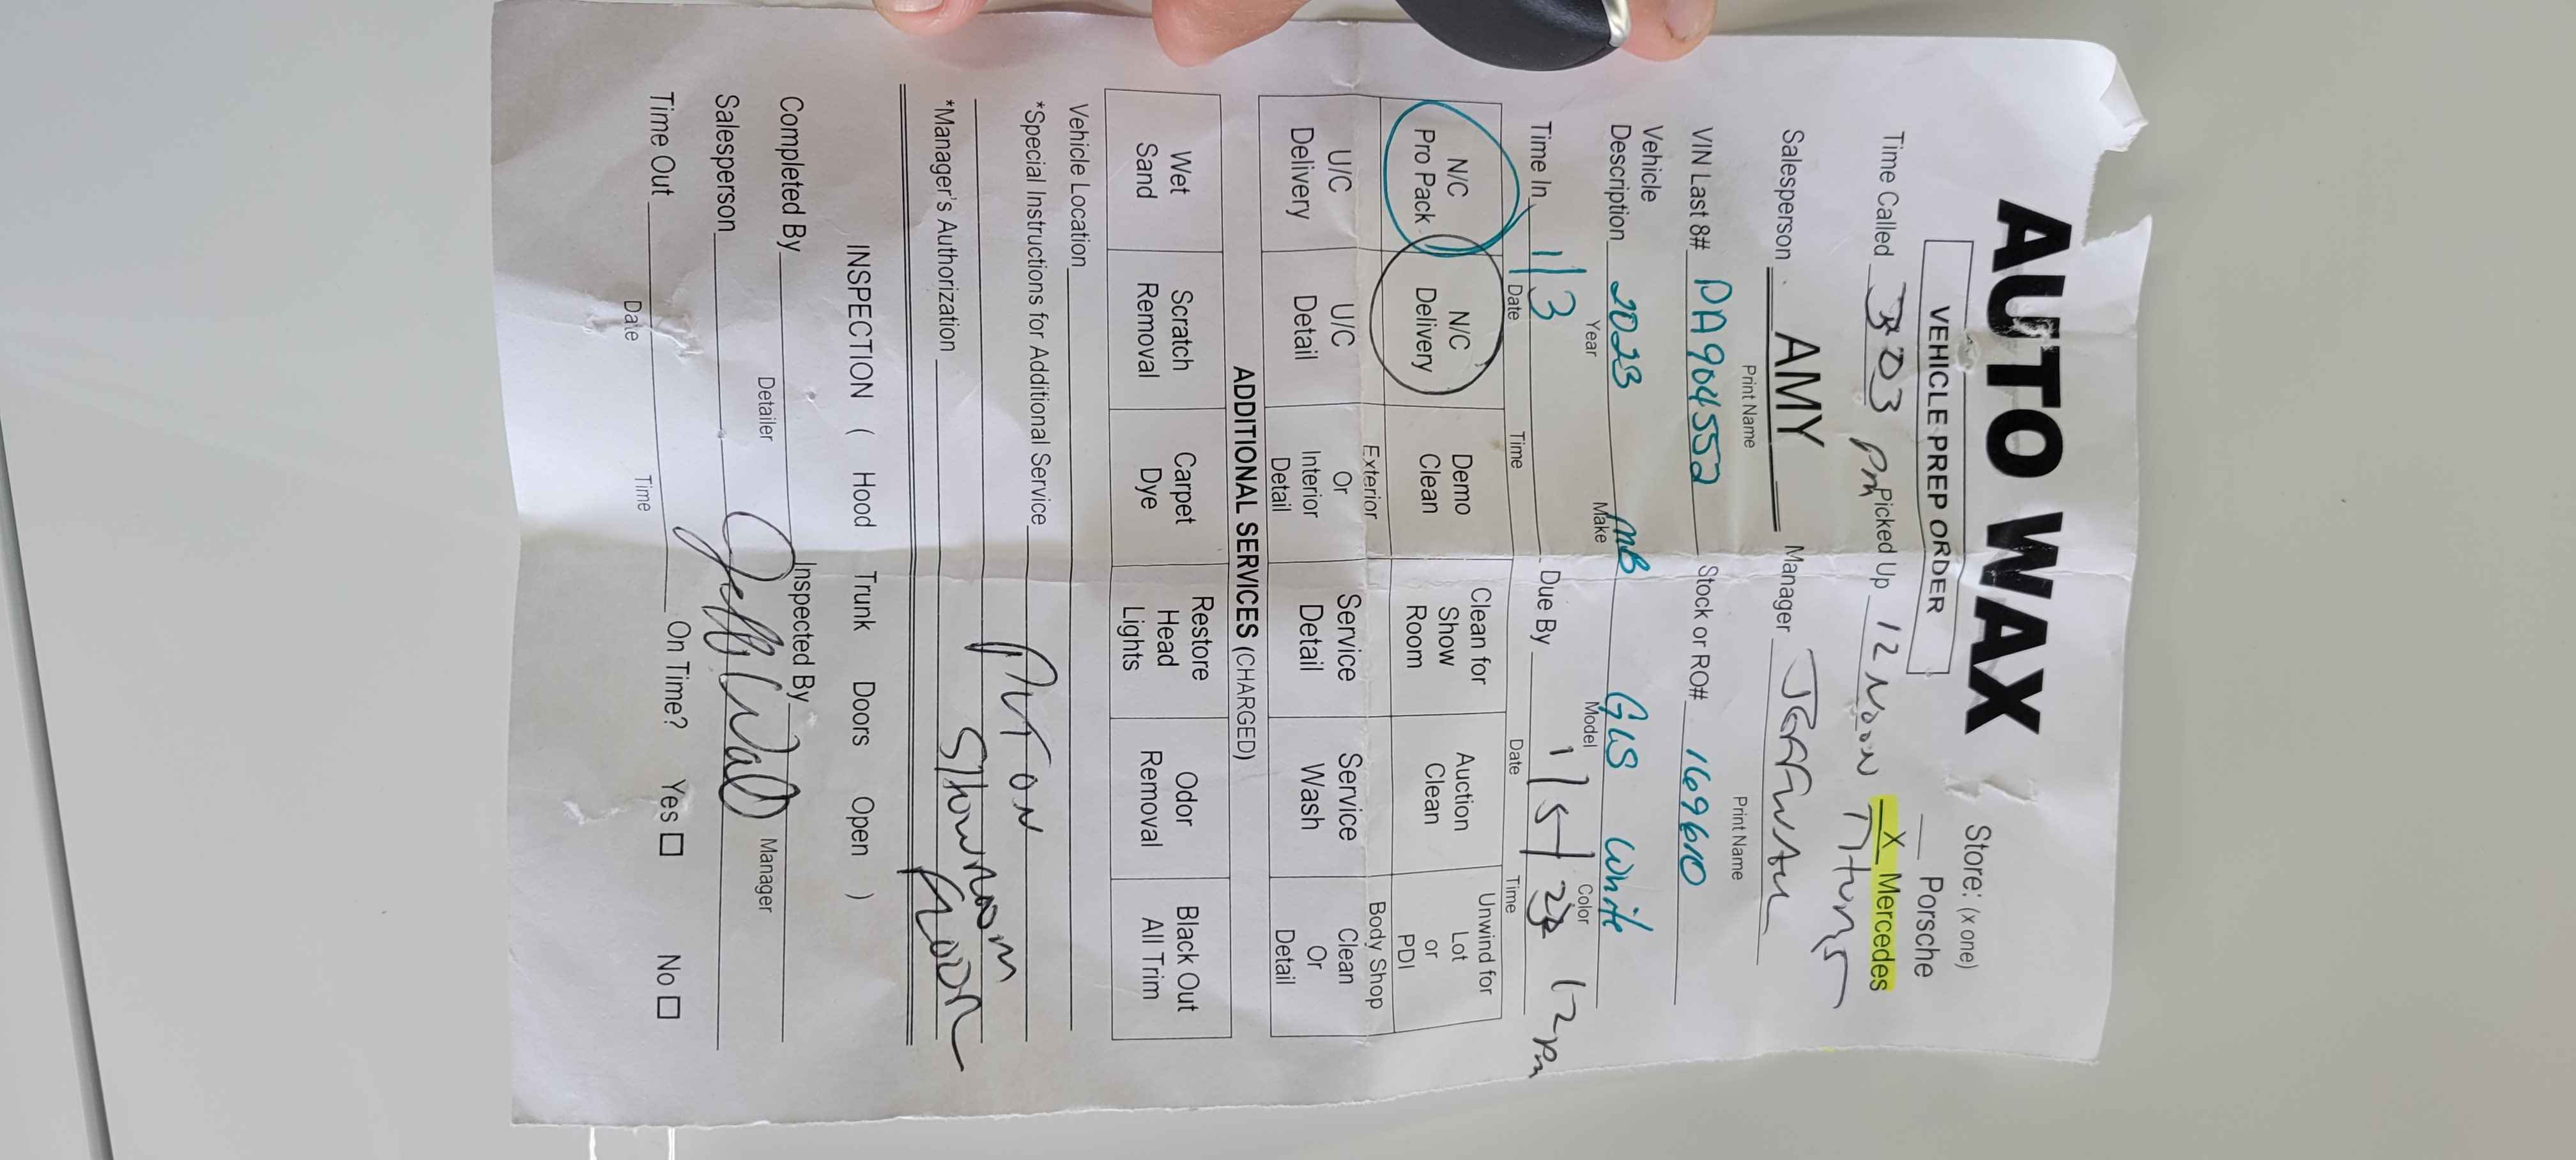 AUTO WAX
Store: (x one)
VEHICLE PREP ORDER
__ Porsche
Time Called 303 pm Picked Up 12 Noon X Mercedes
Salesperson AMY Manager
Print Name Print Name
VIN Last 8# PA904552 Stock or RO# 169610
Vehicle
Description 2023 MB GLS White
Year Make Model Color
Time In 1/3 Due By 1/5/23 12pm
Date Time Date Time
N/C Pro Pack N/C Delivery Demo Clean Clean for Show Room Auction Clean Unwind for Lot or PDI
U/C Delivery U/C Detail Exterior Or Interior Detail Service Detail Service Wash Body Shop Clean Or Detail
ADDITIONAL SERVICES (CHARGED)
Wet Sand Scratch Removal Carpet Dye Restore Head Lights Odor Removal Black Out All Trim
Vehicle Location
*Special Instructions for Additional Service Put on
Showroom
*Manager's Authorization Floor
INSPECTION ( Hood Trunk Doors Open )
Completed By Inspected By
Detailer Manager
Salesperson
Time Out On Time? Yes □ No □
Date Time